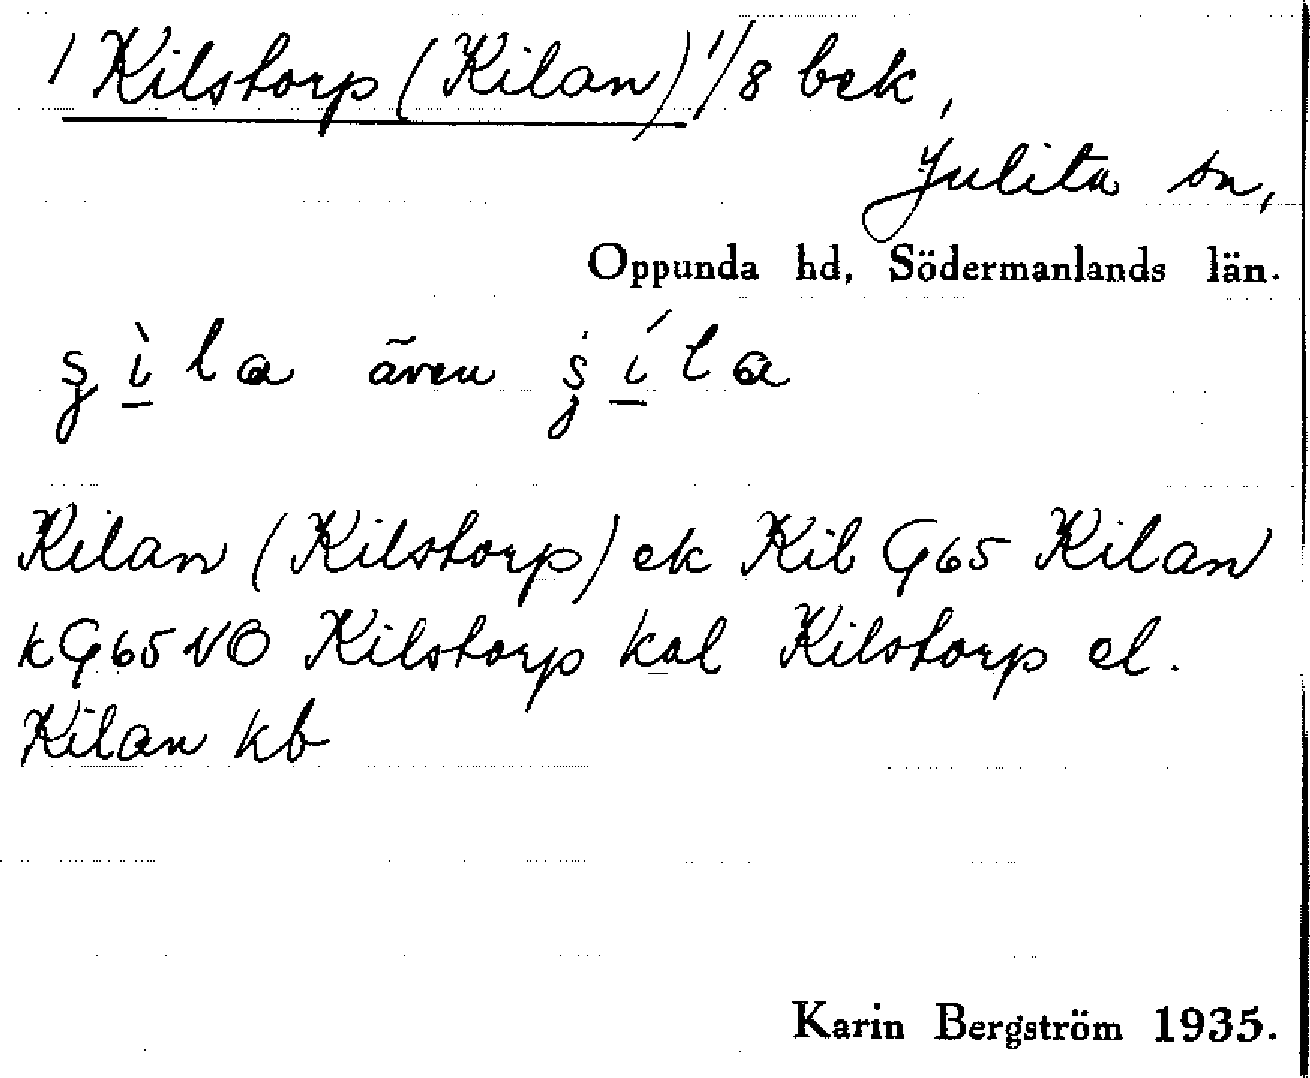 1 Kilstorp (Kilan) 1/8 bek,
Julita sn,
Oppunda hd, Södermanlands län.
även
Kilan (Kilstorp) ek Kil G65 Kilan
k G65NO Kilstorp kal Kilstorp el.
Kilan kb
Karin Bergström 1935.